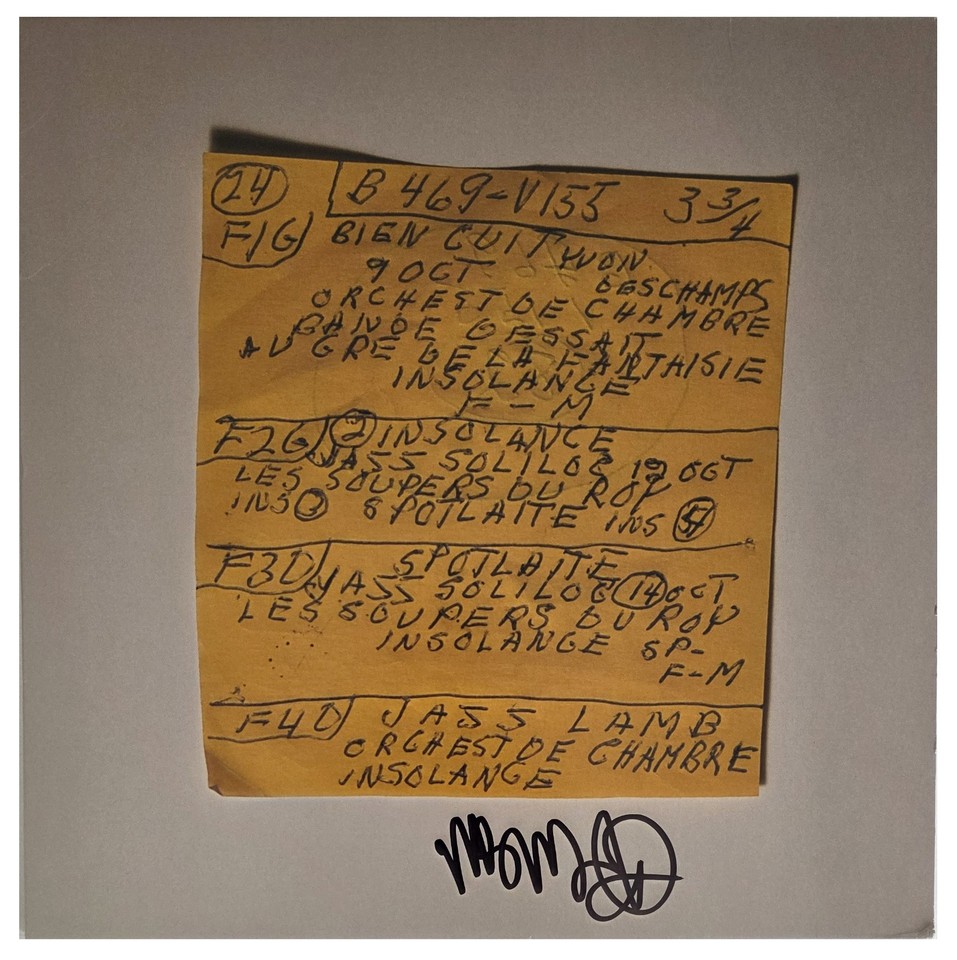 24 B 469-V155 3 3/4
F1G BIEN CUIT YVON
9 OCT DESCHAMPS
ORCHEST DE CHAMBRE
BANDE DESSAIT
AU GRE DE LA FANTAISIE
INSOLANCE
F-M
F2G 2 INSOLANCE
JASS SOLILOC 12 OCT
LES SOUPERS DU ROY
INS 3 SPOTLAITE INS
F3D SPOTLAITE
JASS SOLILOC 14 OCT
LES SOUPERS DU ROY
INSOLANCE SP-
F-M
F4D JASS LAMB
ORCHEST DE CHAMBRE
INSOLANCE